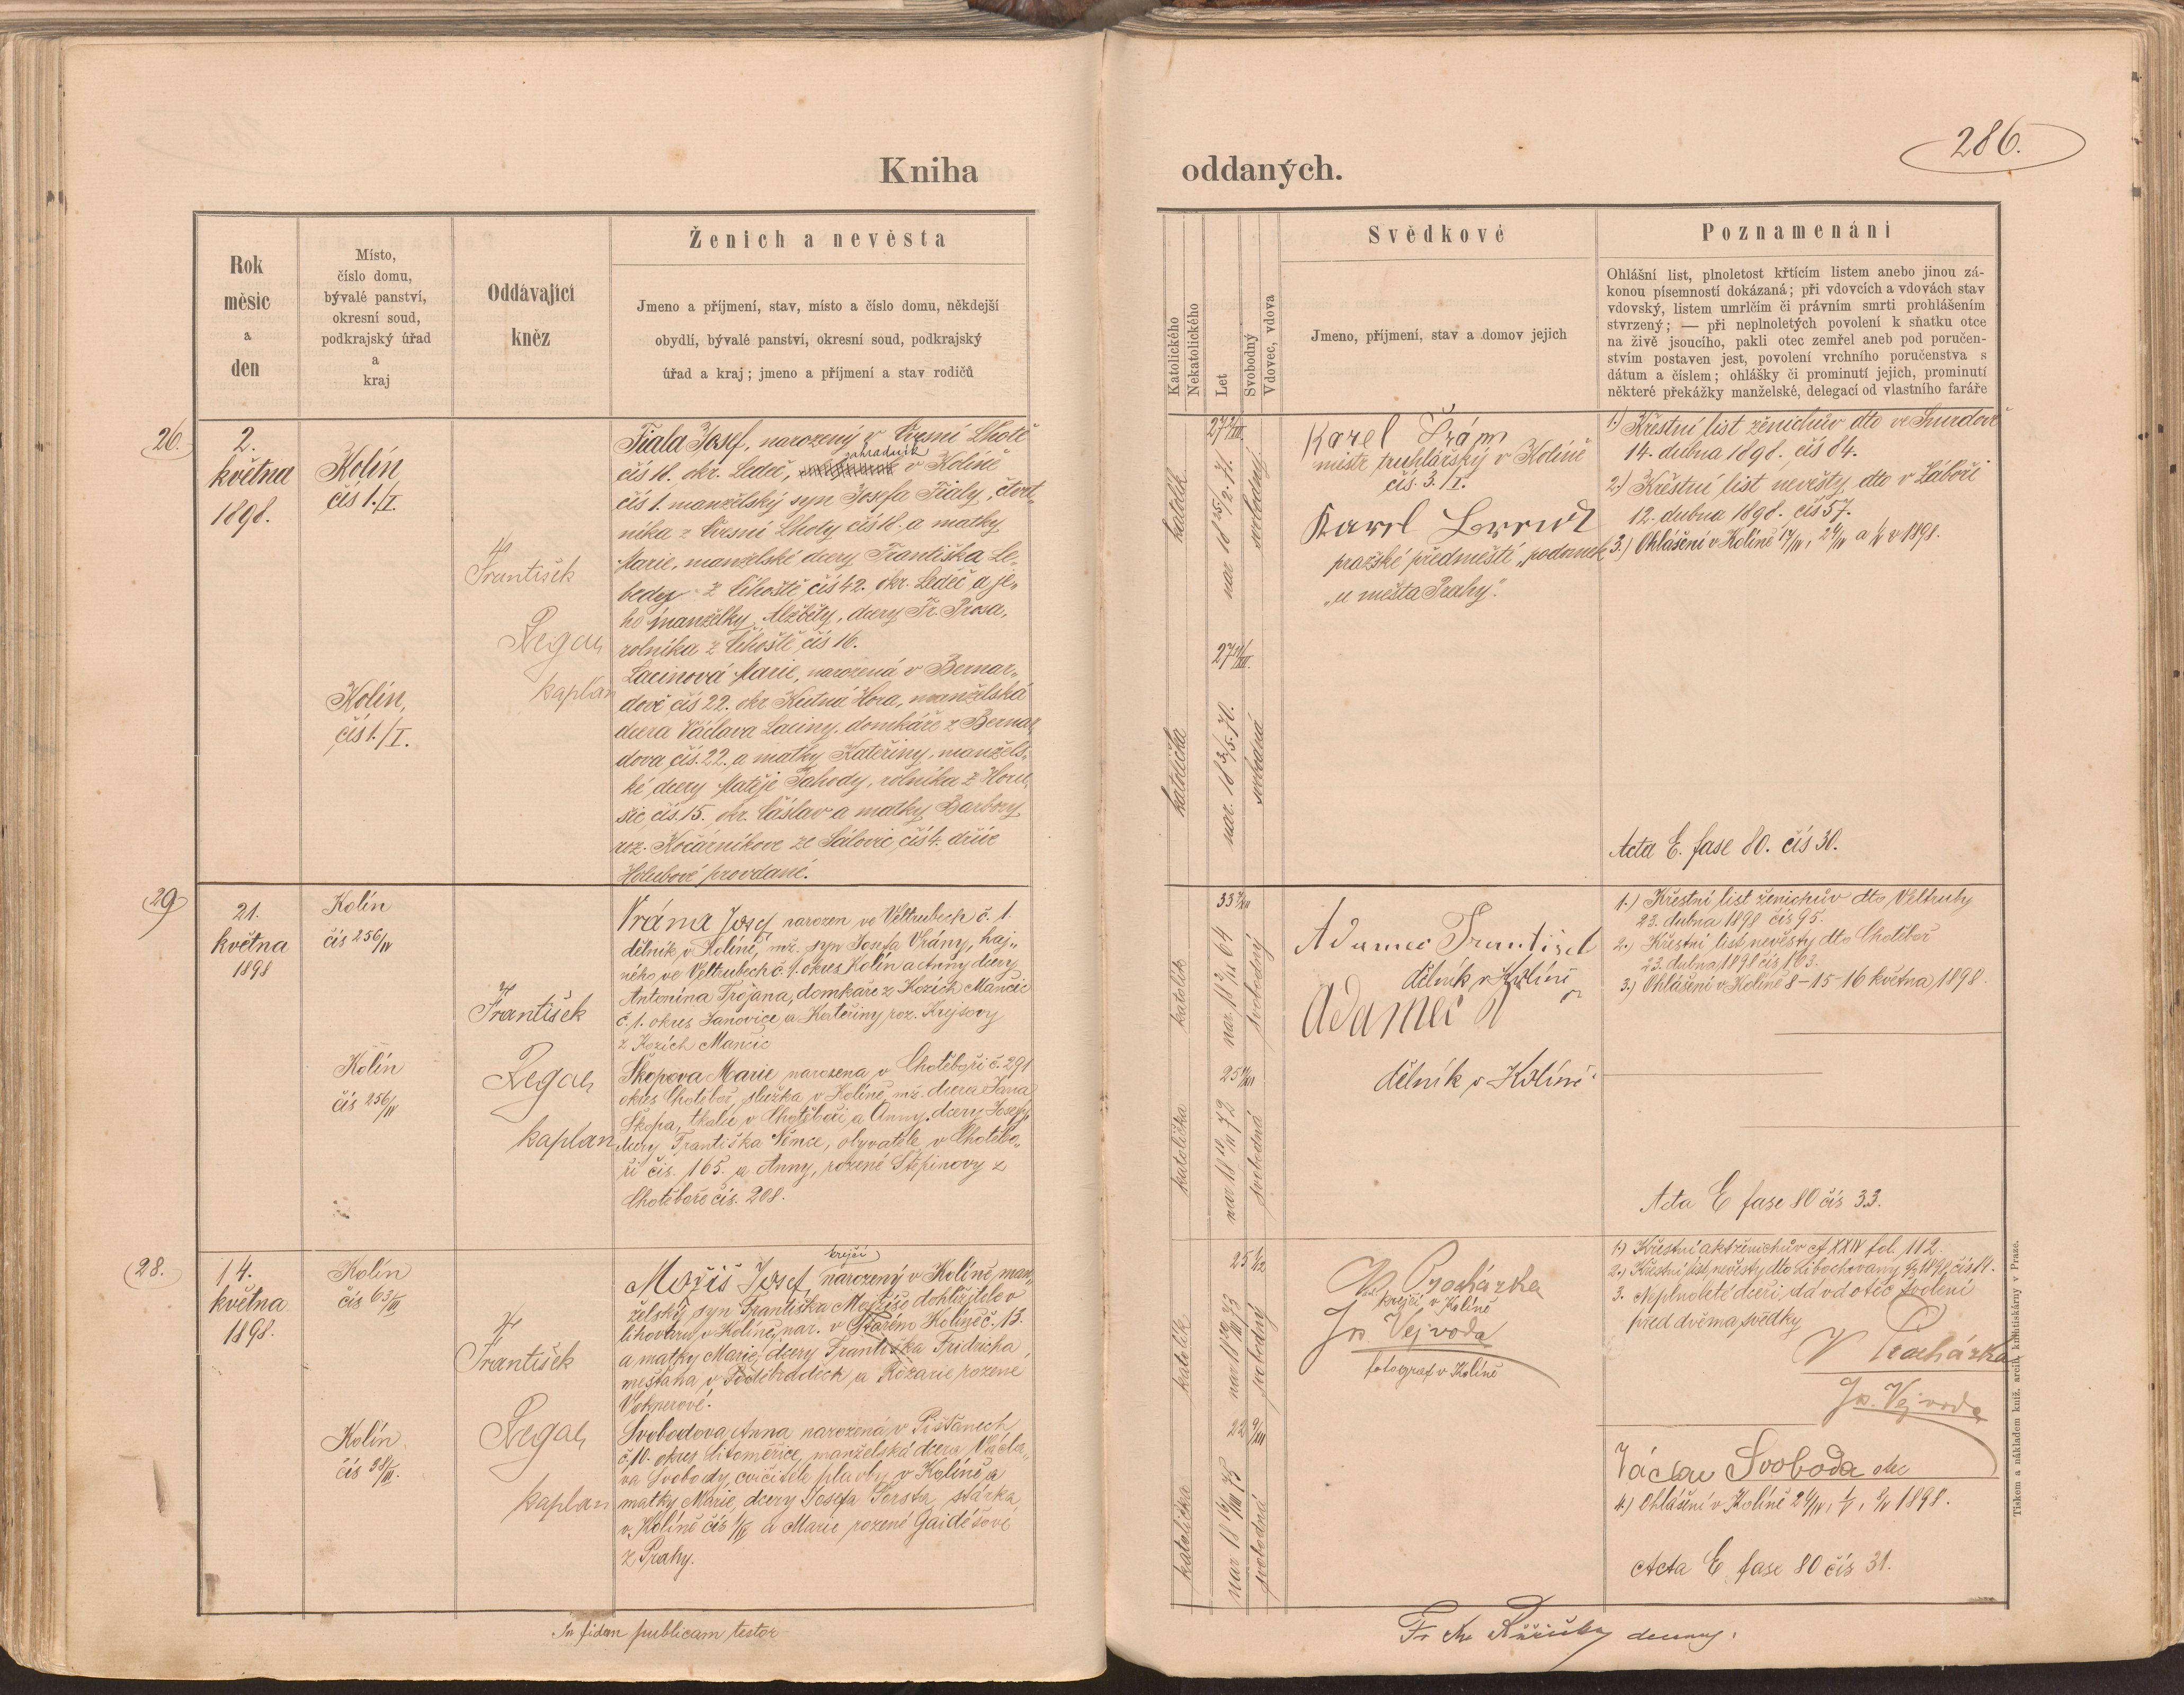 Kniha oddaných.
286.
Rok
měsíc
a
den
Místo,
číslo domu,
bývalé panství,
okresní soud,
podkrajský úřad
a
kraj
Oddávající
kněz
Ženich a nevěsta
Jmeno a příjmení, stav, místo a číslo domu, někdejší
obydlí, bývalé panství, okresní soud, podkrajský
úřad a kraj; jmeno a příjmení a stav rodičů
Katolického
Nekatolického
Let
Svobodný
Vdovec, vdova
Svědkové
Jmeno, příjmení, stav a domov jejich
Poznamenání
Ohlášní list, plnoletost křtícím listem anebo jinou zá-
konou písemností dokázaná; při vdovcích a vdovách stav
vdovský, listem umrlčím či právním smrti prohlášením
stvrzený; — při neplnoletých povolení k sňatku otce
na živě jsoucího, pakli otec zemřel aneb pod poručen-
stvím postaven jest, povolení vrchního poručenstva s
dátum a číslem; ohlášky či prominutí jejich, prominutí
některé překážky manželské, delegací od vlastního faráře
26.
2.
května
1898.
Kolín
čís 1./I.
František
Regal
kaplan
Kolín,
čís 1./I.
Fiala Josef, narozený v Lhotě
zahradník
čís 18. okr. Ledeč, v Kolíně
čís 1. manželský syn Josefa Fialy, čtvrt-
níka z Lhoty čís 18. a matky
Marie, manželské dcery Františka Le-
bedy z Číhoště čís 42. okr. Ledeč a je-
ho manželky Alžběty, dcery Fr. Prosa,
rolníka z Číhoště čís 16.
Lacinová Marie, narozená v Bernar-
dově čís 22. okr Kutná Hora, manželská
dcera Václava Laciny, domkáře z Bernar-
dova čís. 22. a matky Kateřiny, manžels-
ké dcery Matěje Jahody, rolníka z Horu-
šic čís. 15. okr. Čáslav a matky Barbory
roz. Kočárníkove ze čís 4. dříve
Holubové provdané.
katolík
nar 18 25/2. 71.
svobodný
katolička
nar. 18 3/5. 70.
svobodná
Karel
mistr truhlářský v Kolíně
čís. 3./I.
Karel
pražské předměstí
„u města Prahy".
1.) Křestní list ženichův dto
14. dubna 1898. čís 84.
2.) Křestní list nevěsty dto v Záboří
12. dubna 1898. čís 57.
3.) Ohlášení v Kolíně 17/IV, 24/IV a 1/V 1898.
Acta E. fase 80. čís 30.
29
21.
května
1898
Kolín
čís 256/IV
František
Regal
kaplan
Kolín
čís 256/IV
Vrána Josef narozen ve Veltrubech č. 1.
dělník v Kolíně, mž. syn Josefa Vrány, haj-
ného ve Veltrubech č. 1. okres Kolín a Anny dcery
Antonína Trojana, domkáře z Kozích Mančic
č. 1. okres Janovice a Kateřiny roz. Krejsovy
z Kozích Mančic
Škopova Marie narozena v Chotěboři č. 291
okres Chotěboř, služka v Kolíně, mž. dcera Jana
Škopa, tkalce v Chotěboři a Anny, dcery Josefy,
dcery Františka Němce, obyvatele v Chotěbo-
ři čís. 165. a Anny, rozené Štěpinovy z
Chotěboře čís. 208.
katolík
svobodný
katolička
svobodná
Adamec František
dělník v Kolíně
Adamec
dělník v Kolíně
1.) Křestní list ženichův dto Veltruby
23. dubna 1898 čís 95.
2.) Křestní list nevěsty dto Chotěboř
23. dubna 1898 čís 163.
3.) Ohlášení v Kolíně 8 - 15 - 16 května 1898.
Acta E fase 80 čís 33.
28.
14.
května
1898.
Kolín
čís 63/III
František
Regal
kaplan
Kolín
čís 98/III.
krejčí
Josef, narozený v Kolíně, man-
želský syn Františka dohlížitele v
lihovaru v Kolíně, nar. v Starém Kolíně č. 13.
a matky Marie, dcery Františka Fridricha,
měšťana v Poděbradech a Rozarie rozené
Voknerové.
Svobodova Anna narozená v Píšťanech
č. 10. okres Litoměřice, manželská dcera Václa-
va Svobody, cvičitele plavby v Kolíně a
matky Marie, dcery Josefa Forsta, stárka
v Kolíně a Marie rozené Gaidéšové
z Prahy.
katolík
svobodný
katolička
svobodná
V. Procházka
krejčí v Kolíně
Jos. Vejvoda
fotograf v Kolíně
1.) Křestní akt ženichův cf XXIV fol. 112.
2.) Křestní list nevěsty dto Libochovany 4/3 1898 čís 18.
3. Neplnoleté dceři dává otec svolení
před dvěma svědky
V Procházka
Jos. Vejvoda
Václav Svoboda otec
4.) Ohlášení v Kolíně 24/IV, 1/V, 8/V 1898.
Acta E fase 80 čís 31.
In fidem publicam testor
Fr. Růžička
Tiskem a nákladem kníž. arcib. knihtiskárny v Praze.